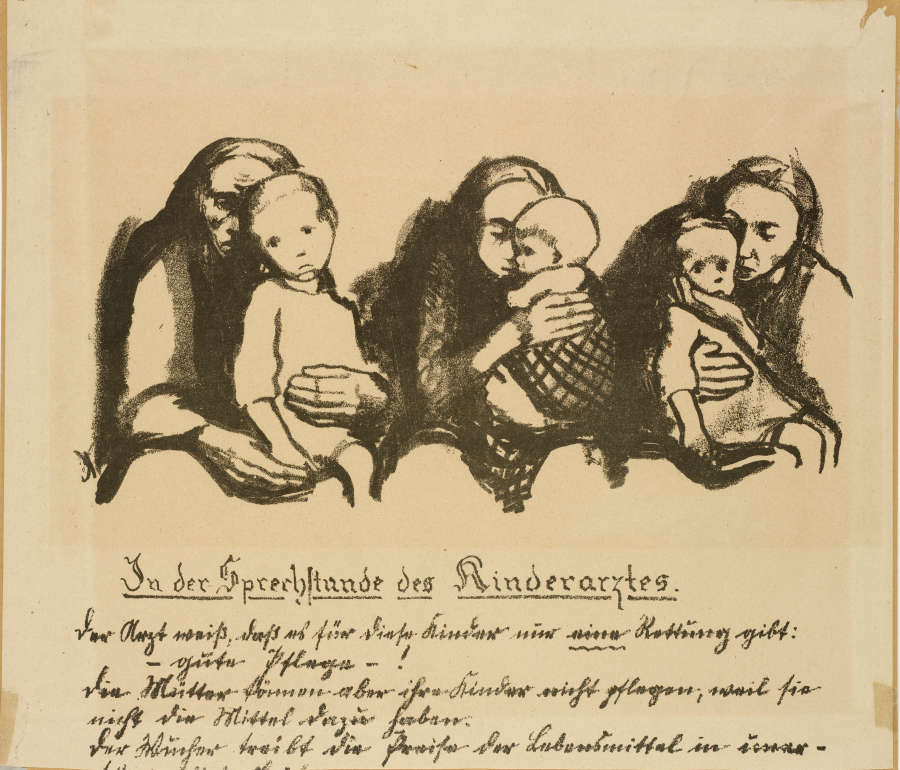 In der Sprechstunde des Kinderarztes.
Der Arzt weiß, daß es für diese Kinder nur eine Rettung gibt:
– gute Pflege – !
Die Mütter können aber ihre Kinder nicht pflegen, weil sie
nicht die Mittel dazu haben.
Der Wucher treibt die Preise der Lebensmittel in uner-